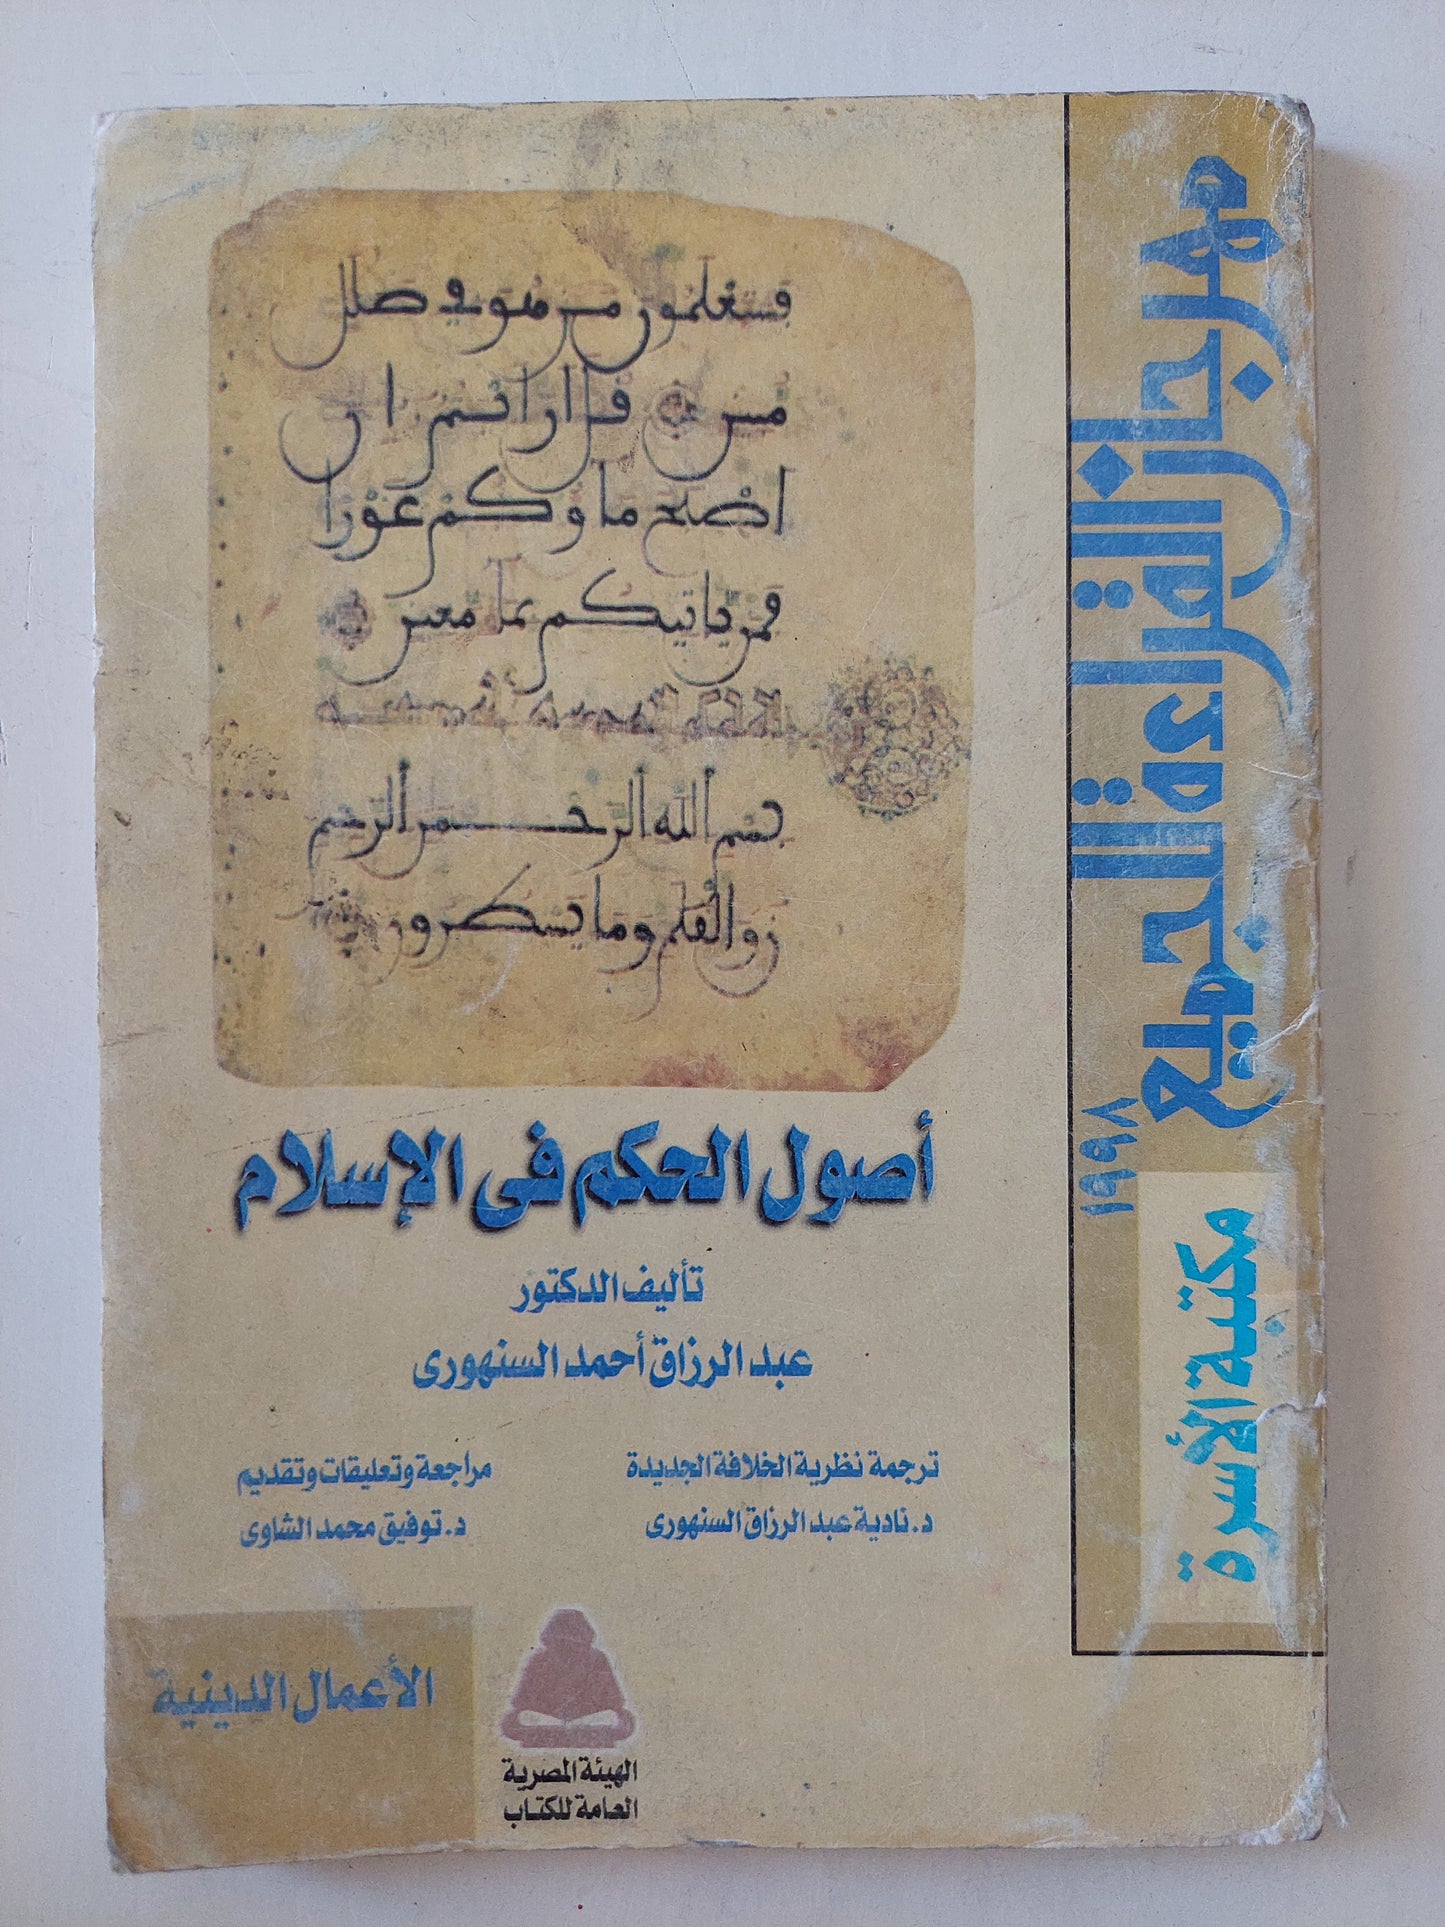 مهرجان القراءة للجميع
١٩٩٨
مكتبة الأسرة
فستعلمون من هو في ضلل
مبين قل ارايتم ان
اصبح ماؤكم غورا
فمن ياتيكم بما معين
بسم الله الرحمن الرحيم
ن والقلم وما يسطرون
أصول الحكم فى الإسلام
تأليف الدكتور
عبد الرزاق أحمد السنهورى
ترجمة نظرية الخلافة الجديدة
د. نادية عبد الرزاق السنهورى
مراجعة وتعليقات وتقديم
د. توفيق محمد الشاوى
الأعمال الدينية
الهيئة المصرية
العامة للكتاب